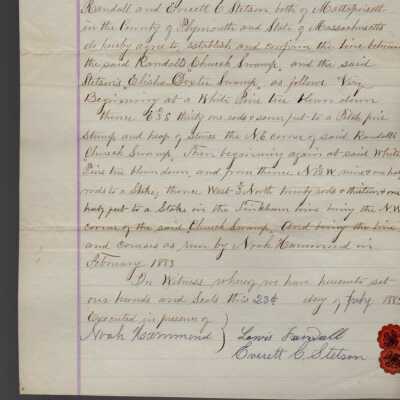 Randall and Everett C Stetson both of Mattapoisett
in the County of Plymouth and State of Massachusetts
do hereby agree to, establish and confirm the line between
the said Randall's "Church Swamp" and the said
Stetson's "Elisha Dexter Swamp" as follows Viz.
Beginning at a White Pine tree blown down
thence E 3/4 S thirty one rods & seven feet to a Pitch pine
stump and heap of stones the N.E corner of said Randall's
"Church Swamp," Then beginning again at said White
Pine tree blown down, and from thence N by W nine & one half
rods to a Stake, thence West North ninety rods & thirteen & one
half feet to a Stake in the Tinkham line being the N.W
corner of the said Church Swamp, And being the line
and courses as run by Noah Hammond in
February 1883
In Witness whereof we have hereunto set
our hands and Seals this 23d day of July 188
Executed in presence of
Noah Hammond
Lewis Randall
Everett C. Stetson